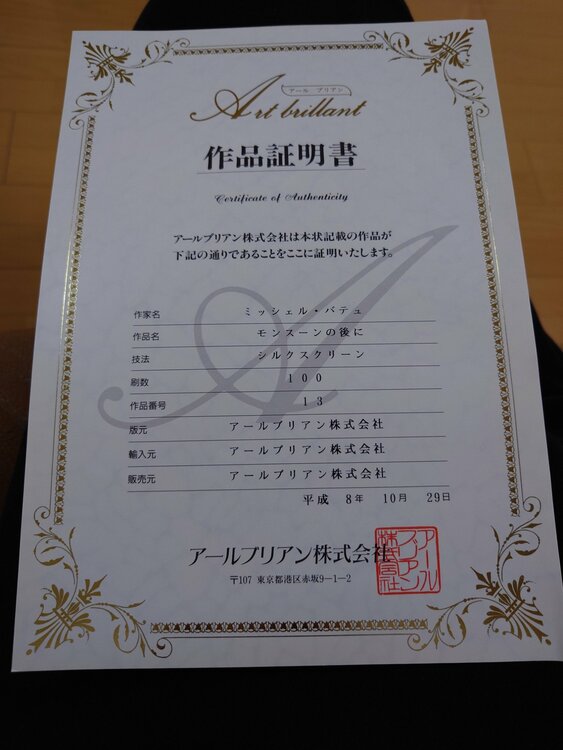 アール ブリアン
Art brillant
作品証明書
Certificate of Authenticity
アールブリアン株式会社は本状記載の作品が
下記の通りであることをここに証明いたします。
作家名 ミッシェル・バテュ
作品名 モンスーンの後に
技法 シルクスクリーン
刷数 100
作品番号 13
版元 アールブリアン株式会社
輸入元 アールブリアン株式会社
販売元 アールブリアン株式会社
平成 8年 10月 29日
アールブリアン株式会社
〒107 東京都港区赤坂9-1-2
アール
ブリアン
株式会社